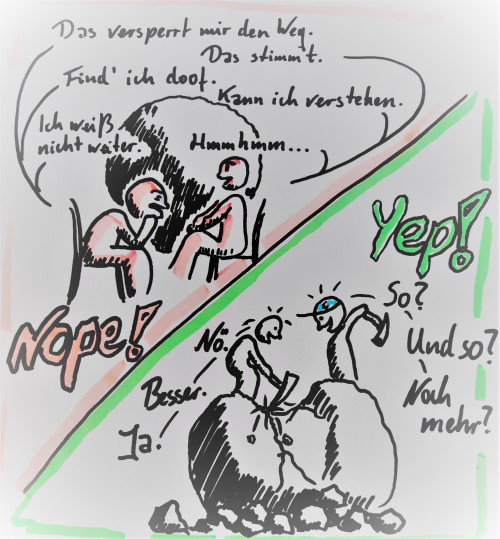 Das versperrt mir den Weg.
Das stimmt.
Find' ich doof.
Kann ich verstehen.
Ich weiß
nicht weiter.
Hmmhmm...
Nope!
Yep!
So?
Nö.
Und so?
Besser.
Noch
mehr?
Ja.